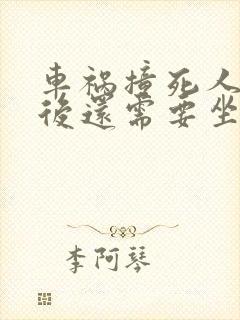 車禍撞死人
後還需要坐
李阿琴